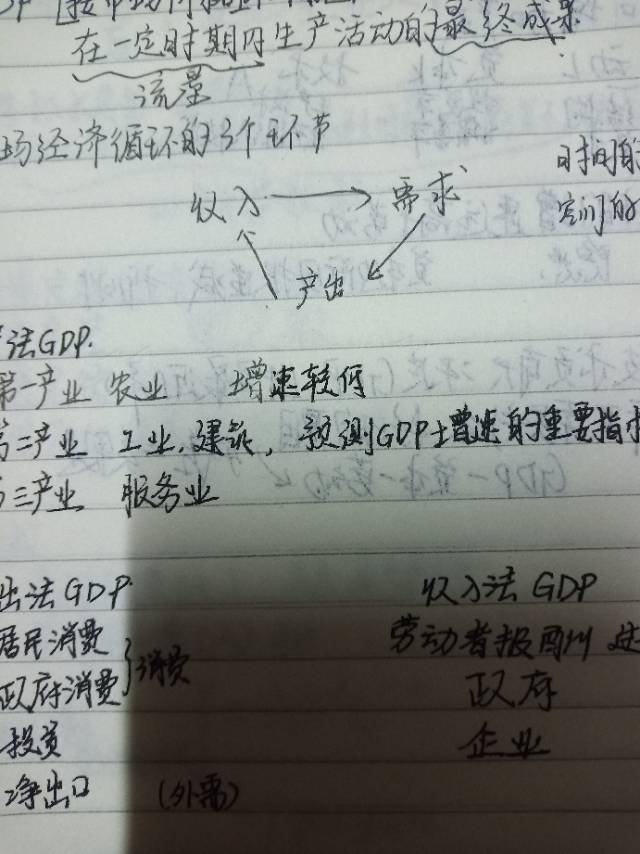 在一定时期内生产活动的最终成果
流量
场经济循环的3个环节
时间的
收入 需求
空间的
产出
法GDP.
第一产业 农业 增速较低
第二产业 工业,建筑, 预测GDP增速的重要指标
三产业 服务业
出法GDP 收入法 GDP
居民消费 劳动者报酬
政府消费 消费 政府
投资 企业
净出口 (外需)